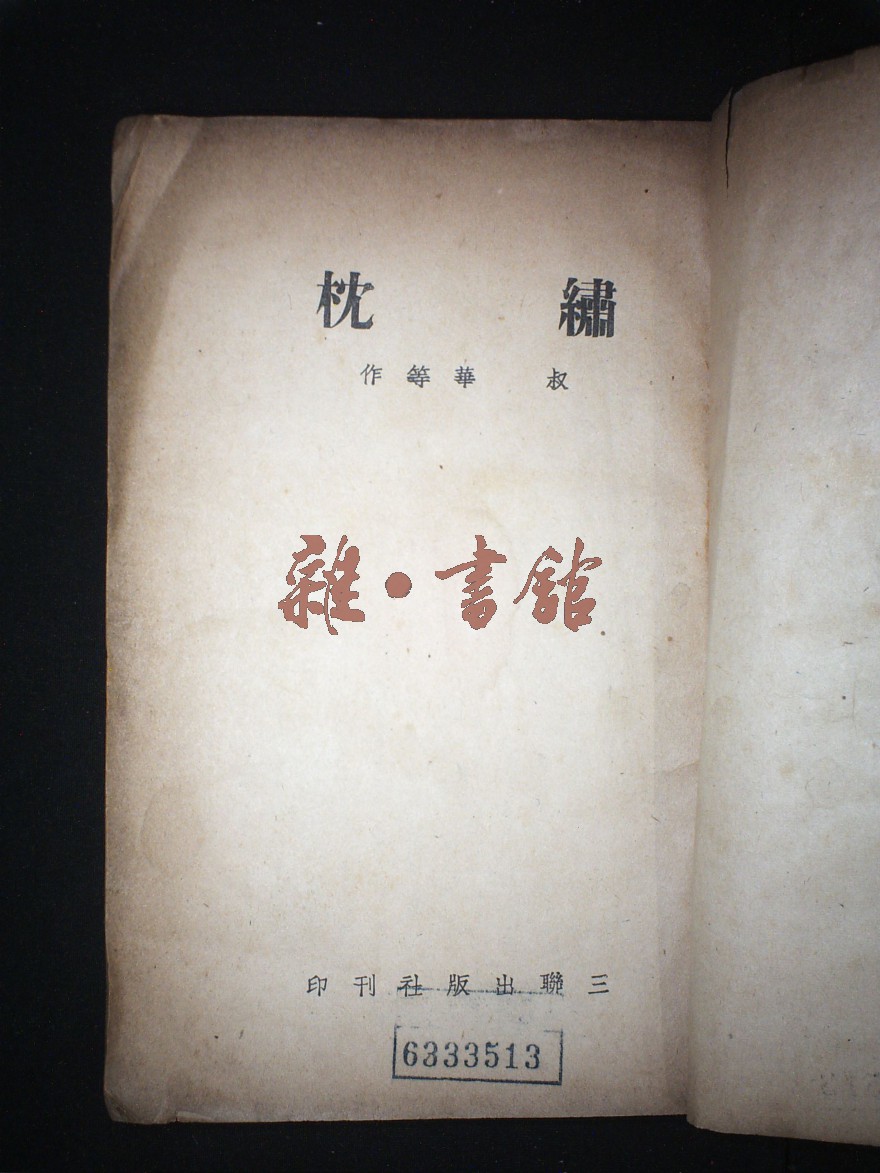 繡枕
叔華等作
雜·書館
三聯出版社刊印
6333513